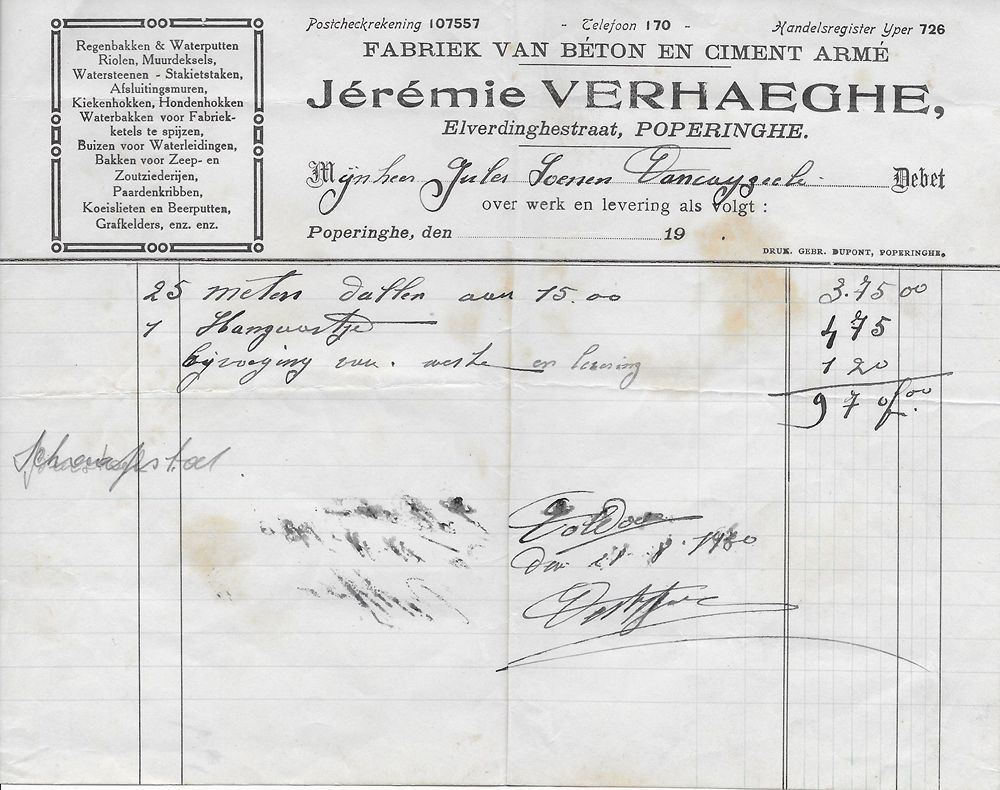 Regenbakken & Waterputten
Riolen, Muurdeksels,
Watersteenen - Stakietstaken,
Afsluitingsmuren,
Kiekenhokken, Hondenhokken
Waterbakken voor Fabriek-
ketels te spijzen,
Buizen voor Waterleidingen,
Bakken voor Zeep- en
Zoutziederijen,
Paardenkribben,
Koeislieten en Beerputten,
Grafkelders, enz. enz.
Postcheckrekening 107557 - Telefoon 170 - Handelsregister Yper 726
FABRIEK VAN BÉTON EN CIMENT ARMÉ
Jérémie VERHAEGHE,
Elverdinghestraat, POPERINGHE.
Mijnheer Jules Debet
over werk en levering als volgt :
Poperinghe, den 19
DRUK. GEBR. DUPONT, POPERINGHE.
25 meters dallen aan 15.00 3.75 00
1 475
bijvoeging van werk en levering 120
970f.00
Voldaan
den